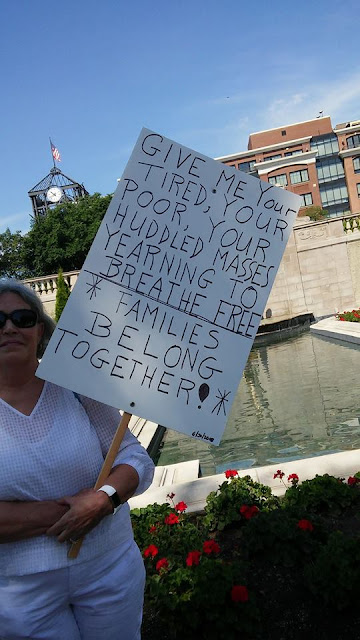 GIVE ME YOUR
TIRED, YOUR
POOR, YOUR
HUDDLED MASSES
YEARNING TO
BREATHE FREE
* FAMILIES
BELONG
TOGETHER! *